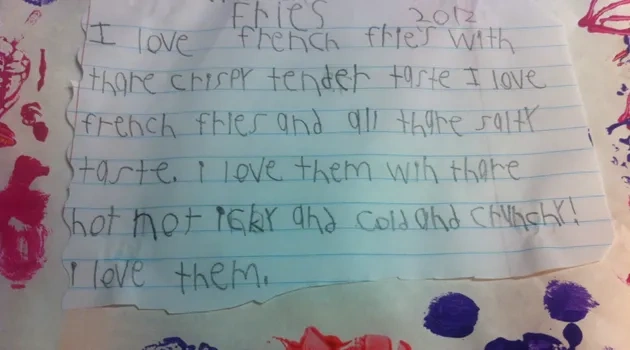 Fries 2012
I love french fries with
thare crispy tender taste I love
french fries and all thare salty
taste. i love them wih thare
hot not icky and cold and chrunchy!
i love them.